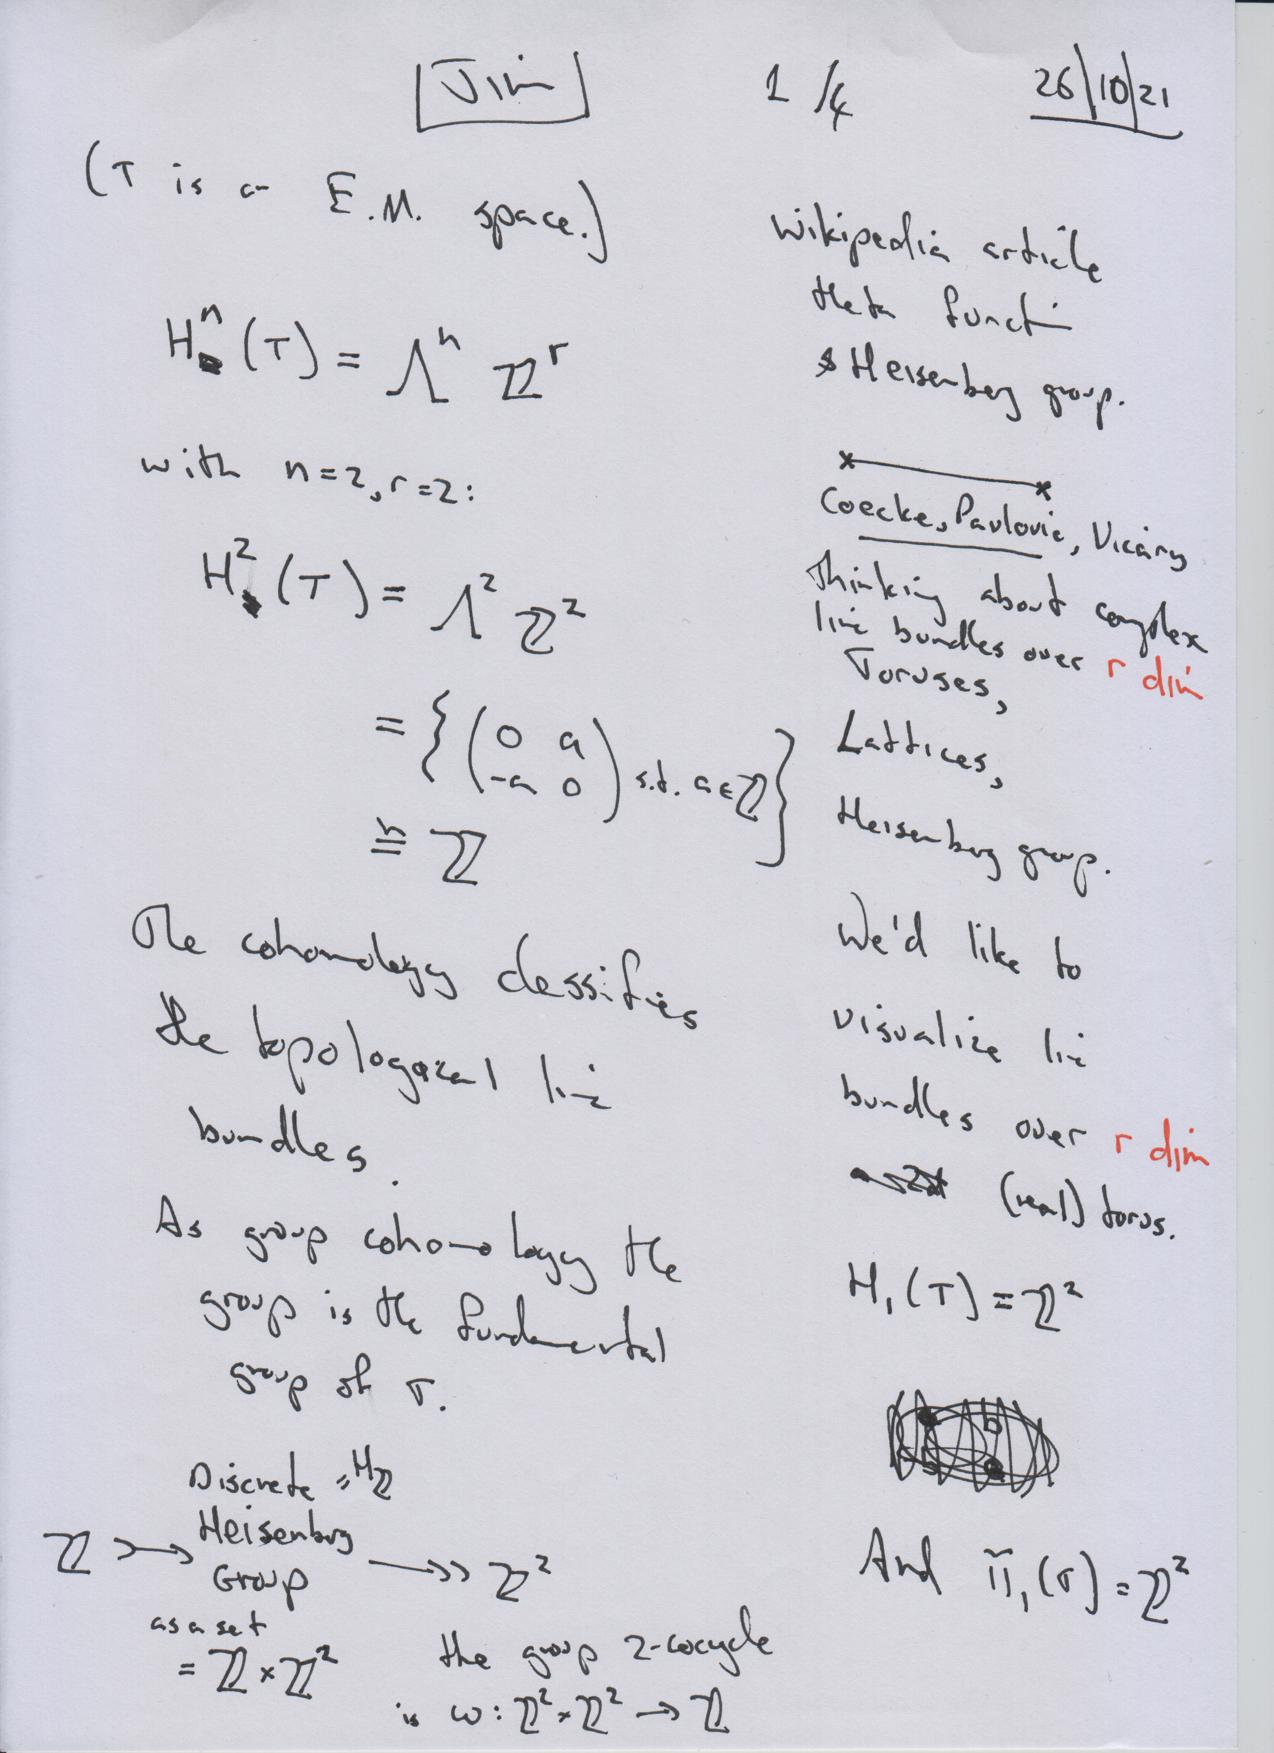 Jim
1/4
26/10/21
(T is a E.M. space.)
Hⁿ(T) = Λⁿ ℤʳ
with n=2, r=2:
H²(T) = Λ² ℤ²
= { ( 0 a
-a 0 ) s.t. a∈ℤ }
≅ ℤ
The cohomology classifies
the topological line
bundles.
As group cohomology the
group is the fundamental
group of T.
Discrete = Hℤ
Heisenberg
Group
ℤ >→ →> ℤ²
as a set
= ℤ×ℤ²
the group 2-cocycle
is ω: ℤ²×ℤ² → ℤ
Wikipedia article
theta function
& Heisenberg group.
Coecke, Pavlovic, Vicary
Thinking about complex
line bundles over r dim
Toruses,
Lattices,
Heisenberg group.
We'd like to
visualize line
bundles over r dim
(real) torus.
H₁(T) = ℤ²
b
And π₁(T) = ℤ²